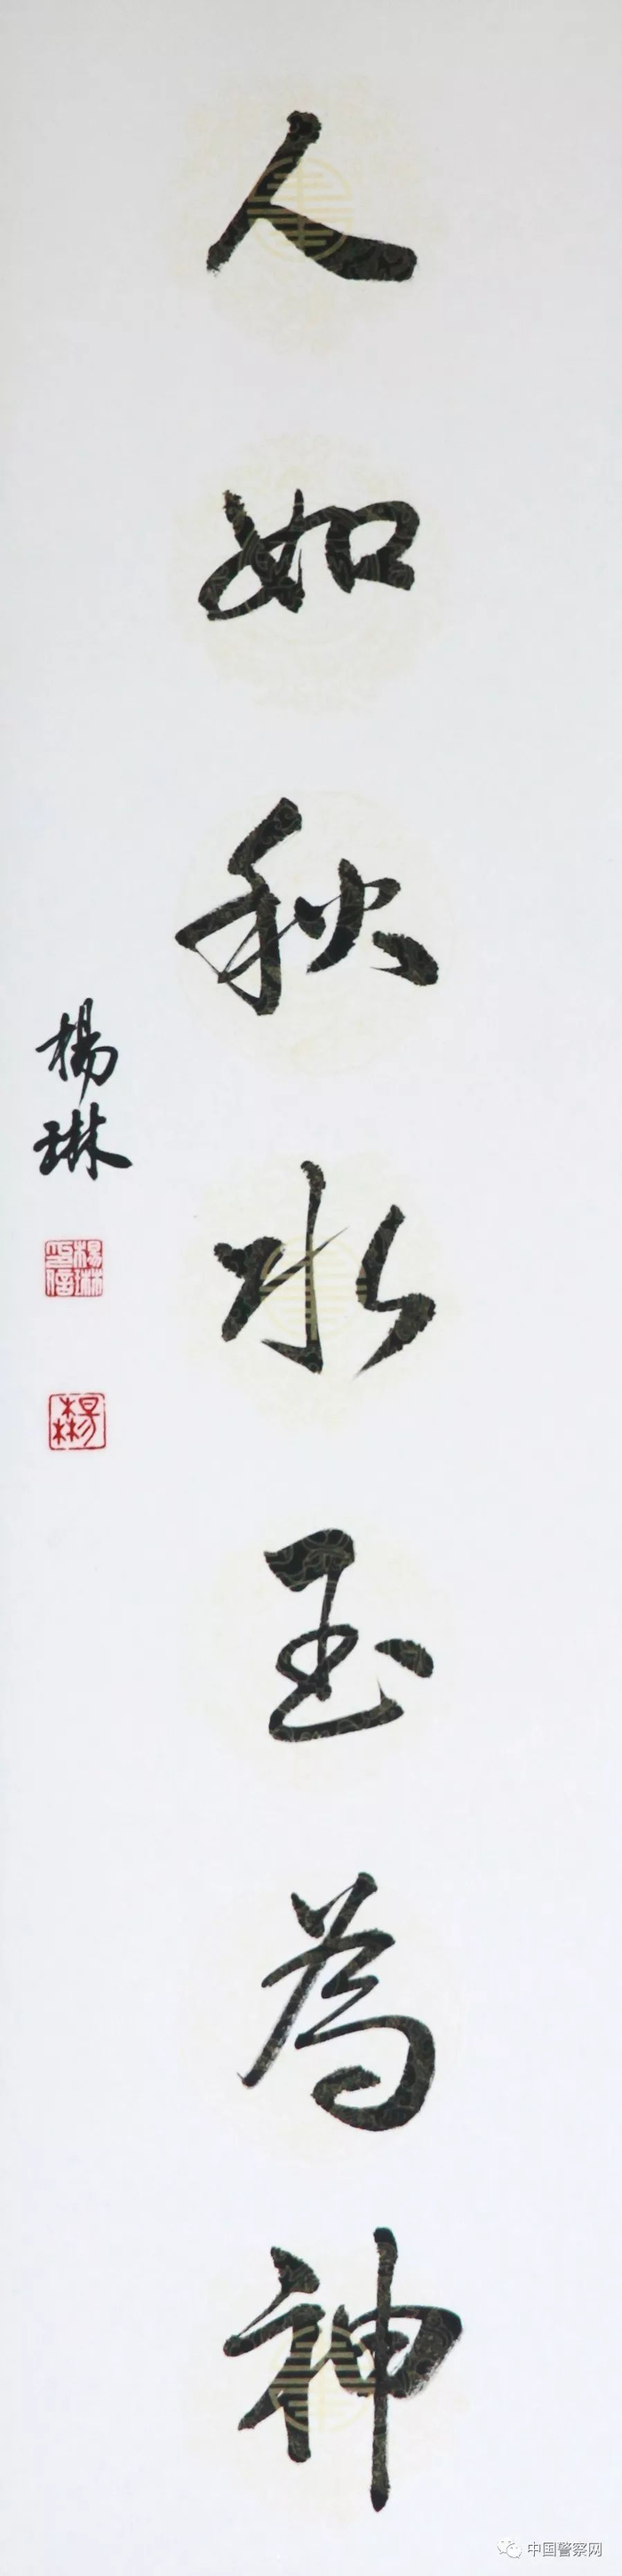 人如秋水玉為神
楊琳
楊琳印信
楊琳
中国警察网